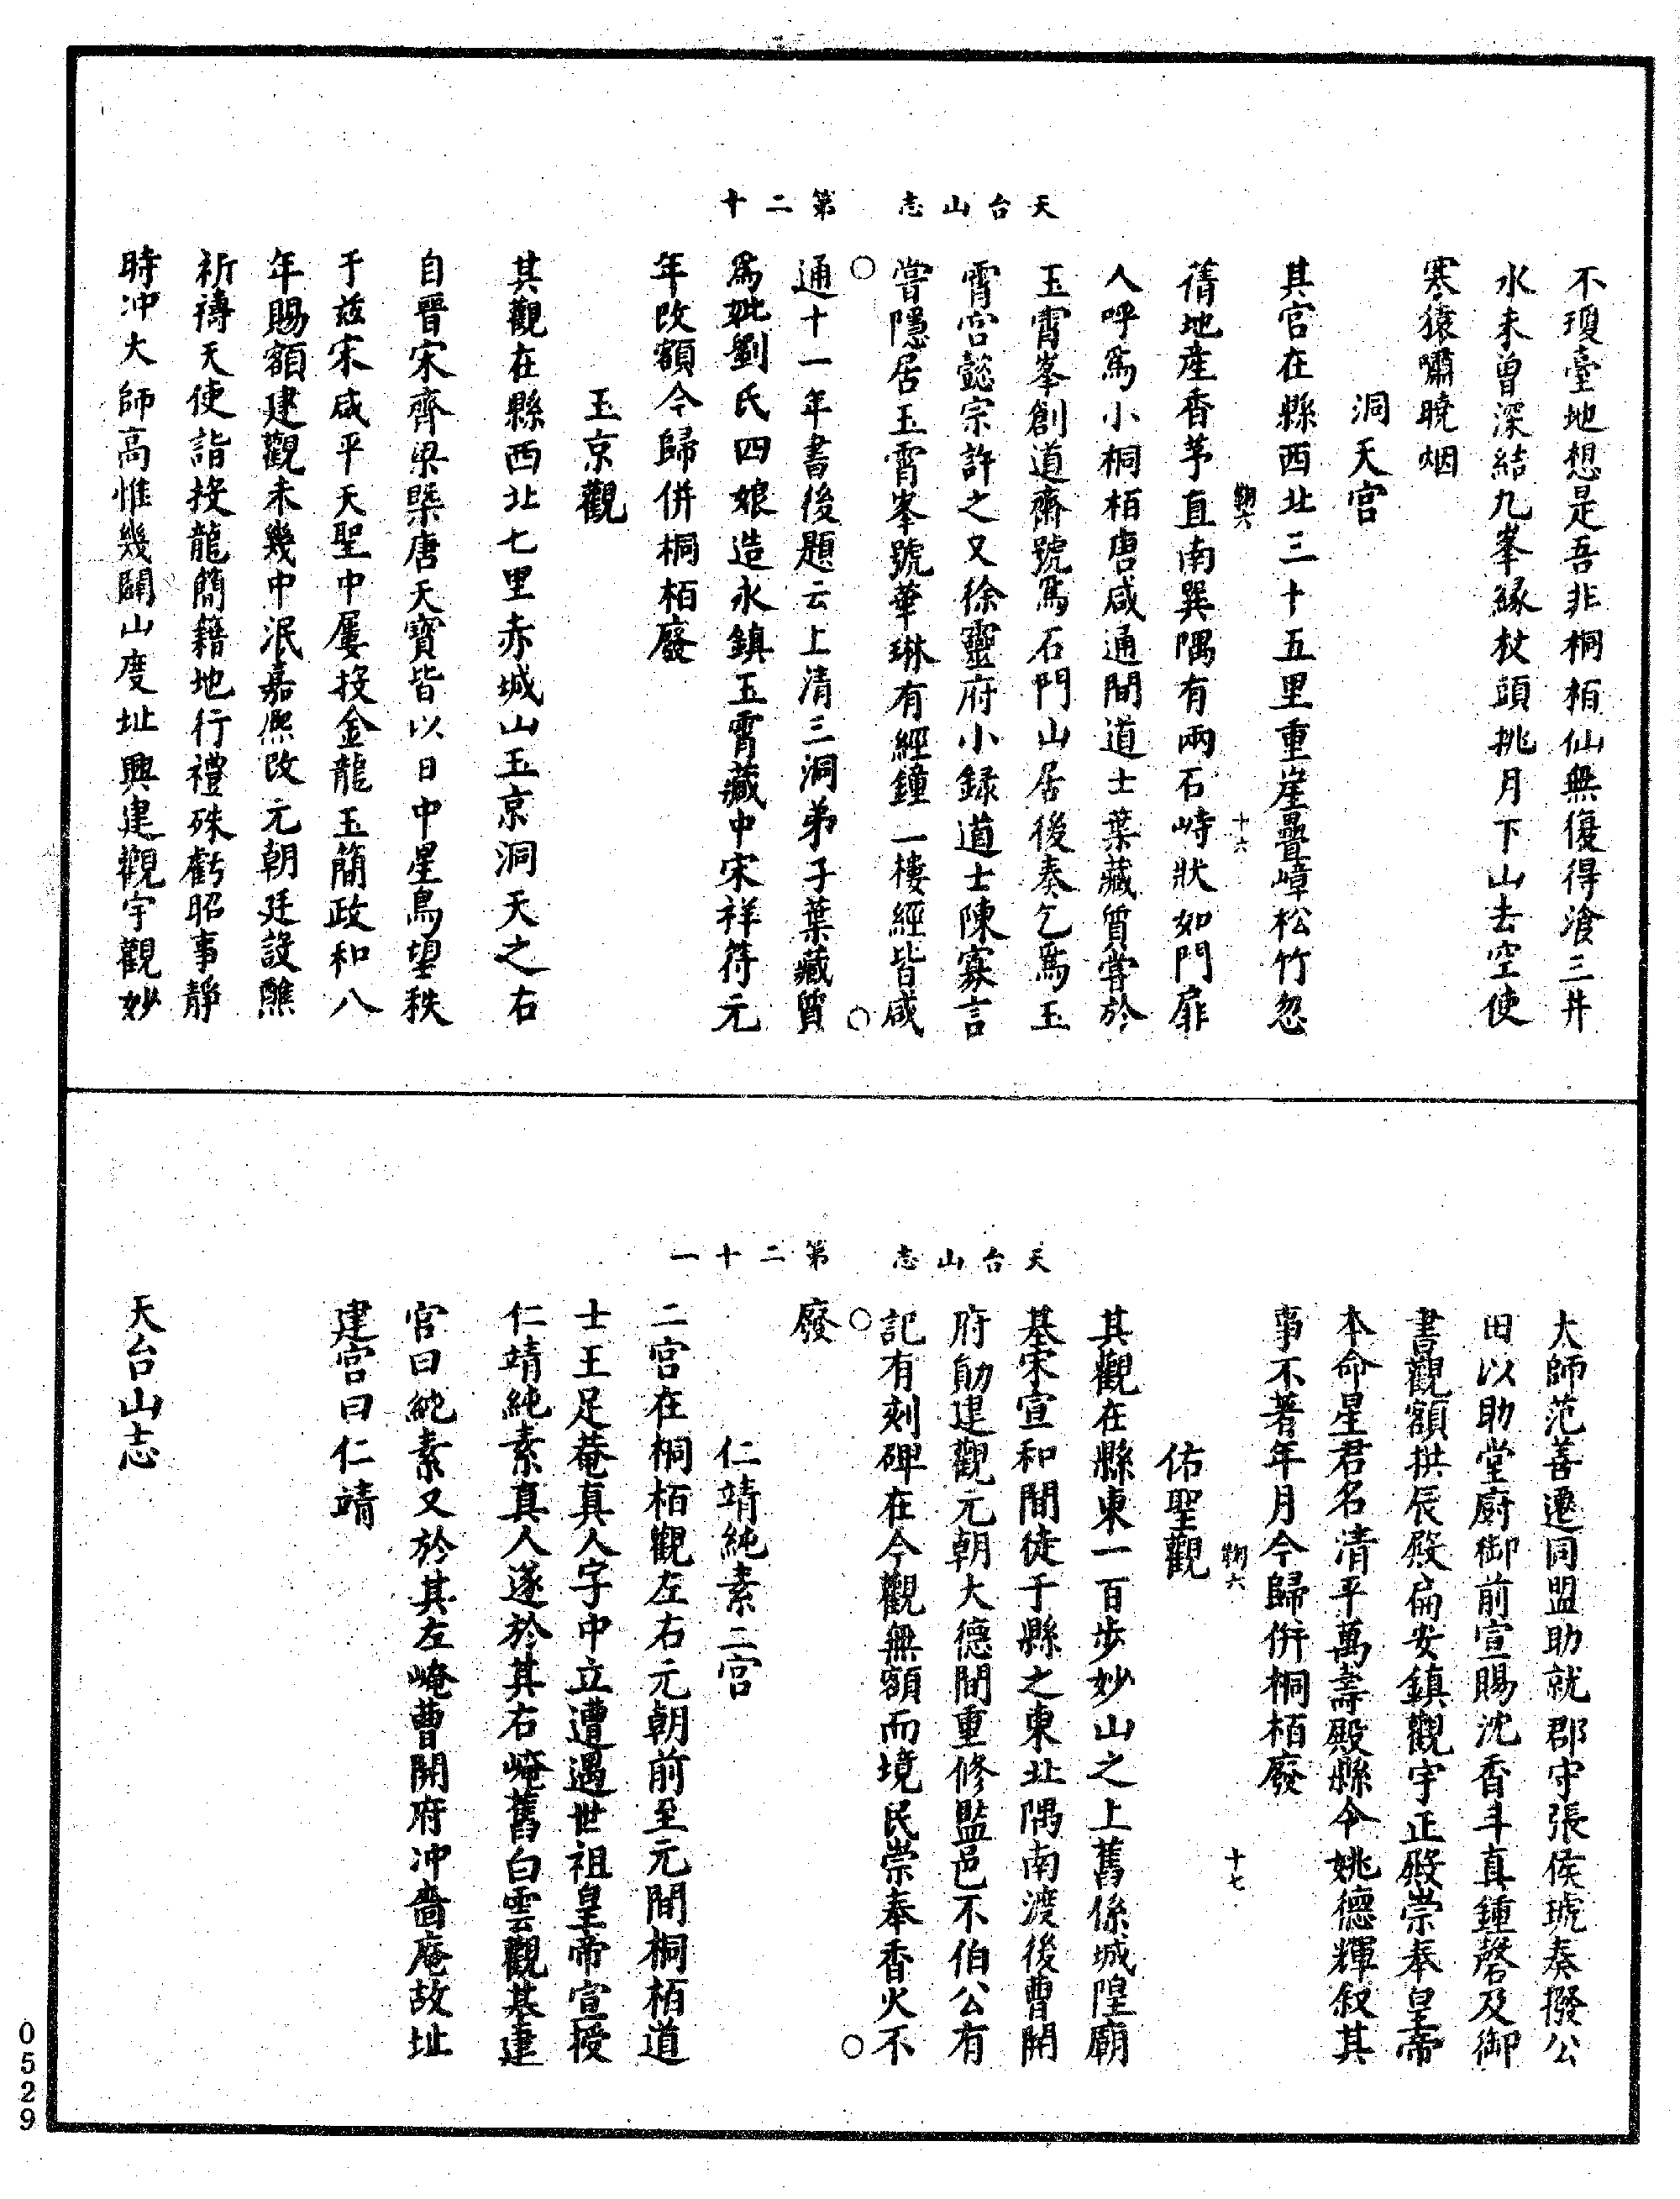 天台山志　第二十
不瓊臺地想是吾非桐栢仙無復得飡三井
水未曾深結九峯緣杖頭挑月下山去空使
寒猿嘯曉烟
洞天宮
其宮在縣西北三十五里重崖疊嶂松竹忽
蒨地産香茅直南巽隅有兩石峙狀如門扉
人呼爲小桐栢唐咸通間道士葉藏質嘗於
玉霄峯創道齋號爲石門山居後奏乞爲玉
霄宮懿宗許之又徐靈府小録道士陳寡言
嘗隱居玉霄峯號華琳有經鐘一樓經皆咸
通十一年書後題云上清三洞弟子葉藏質
爲妣劉氏四娘造永鎮玉霄藏中宋祥符元
年改額今歸併桐栢廢
玉京觀
其觀在縣西北七里赤城山玉京洞天之右
自晉宋齊梁𣊬唐天寶皆以日中星鳥望秩
于兹宋咸平天聖中屢投金龍玉簡政和八
年賜額建觀未幾中泯嘉熙改元朝廷設醮
祈禱天使詣投龍簡籍地行禮殊虧昭事靜
時冲大師高惟幾闢山度址興建觀宇觀妙
鞠六　十六
天台山志　第二十一
大師范善遷同盟助就郡守張侯琥奏撥公
田以助堂厨御前宣賜沈香斗真鍾磬及御
書觀額拱辰殿扁安鎮觀宇正殿崇奉皇帝
本命星君名清平萬壽殿縣令姚德輝叙其
事不著年月今歸併桐栢廢
佑聖觀
其觀在縣東一百步妙山之上舊係城隍廟
基宋宣和間徙于縣之東北隅南渡後曹開
府勛建觀元朝大德間重修監邑不伯公有
記有刻碑在今觀無額而境民崇奉香火不
廢
仁靖純素二宮
二宮在桐栢觀左右元朝前至元間桐栢道
士王足菴真人字中立遭遇世祖皇帝宣授
仁靖純素真人遂於其右崦舊白雲觀基建
宮曰純素又於其左崦曹開府冲嗇庵故址
建宮曰仁靖
天台山志
鞠六　十七
0529